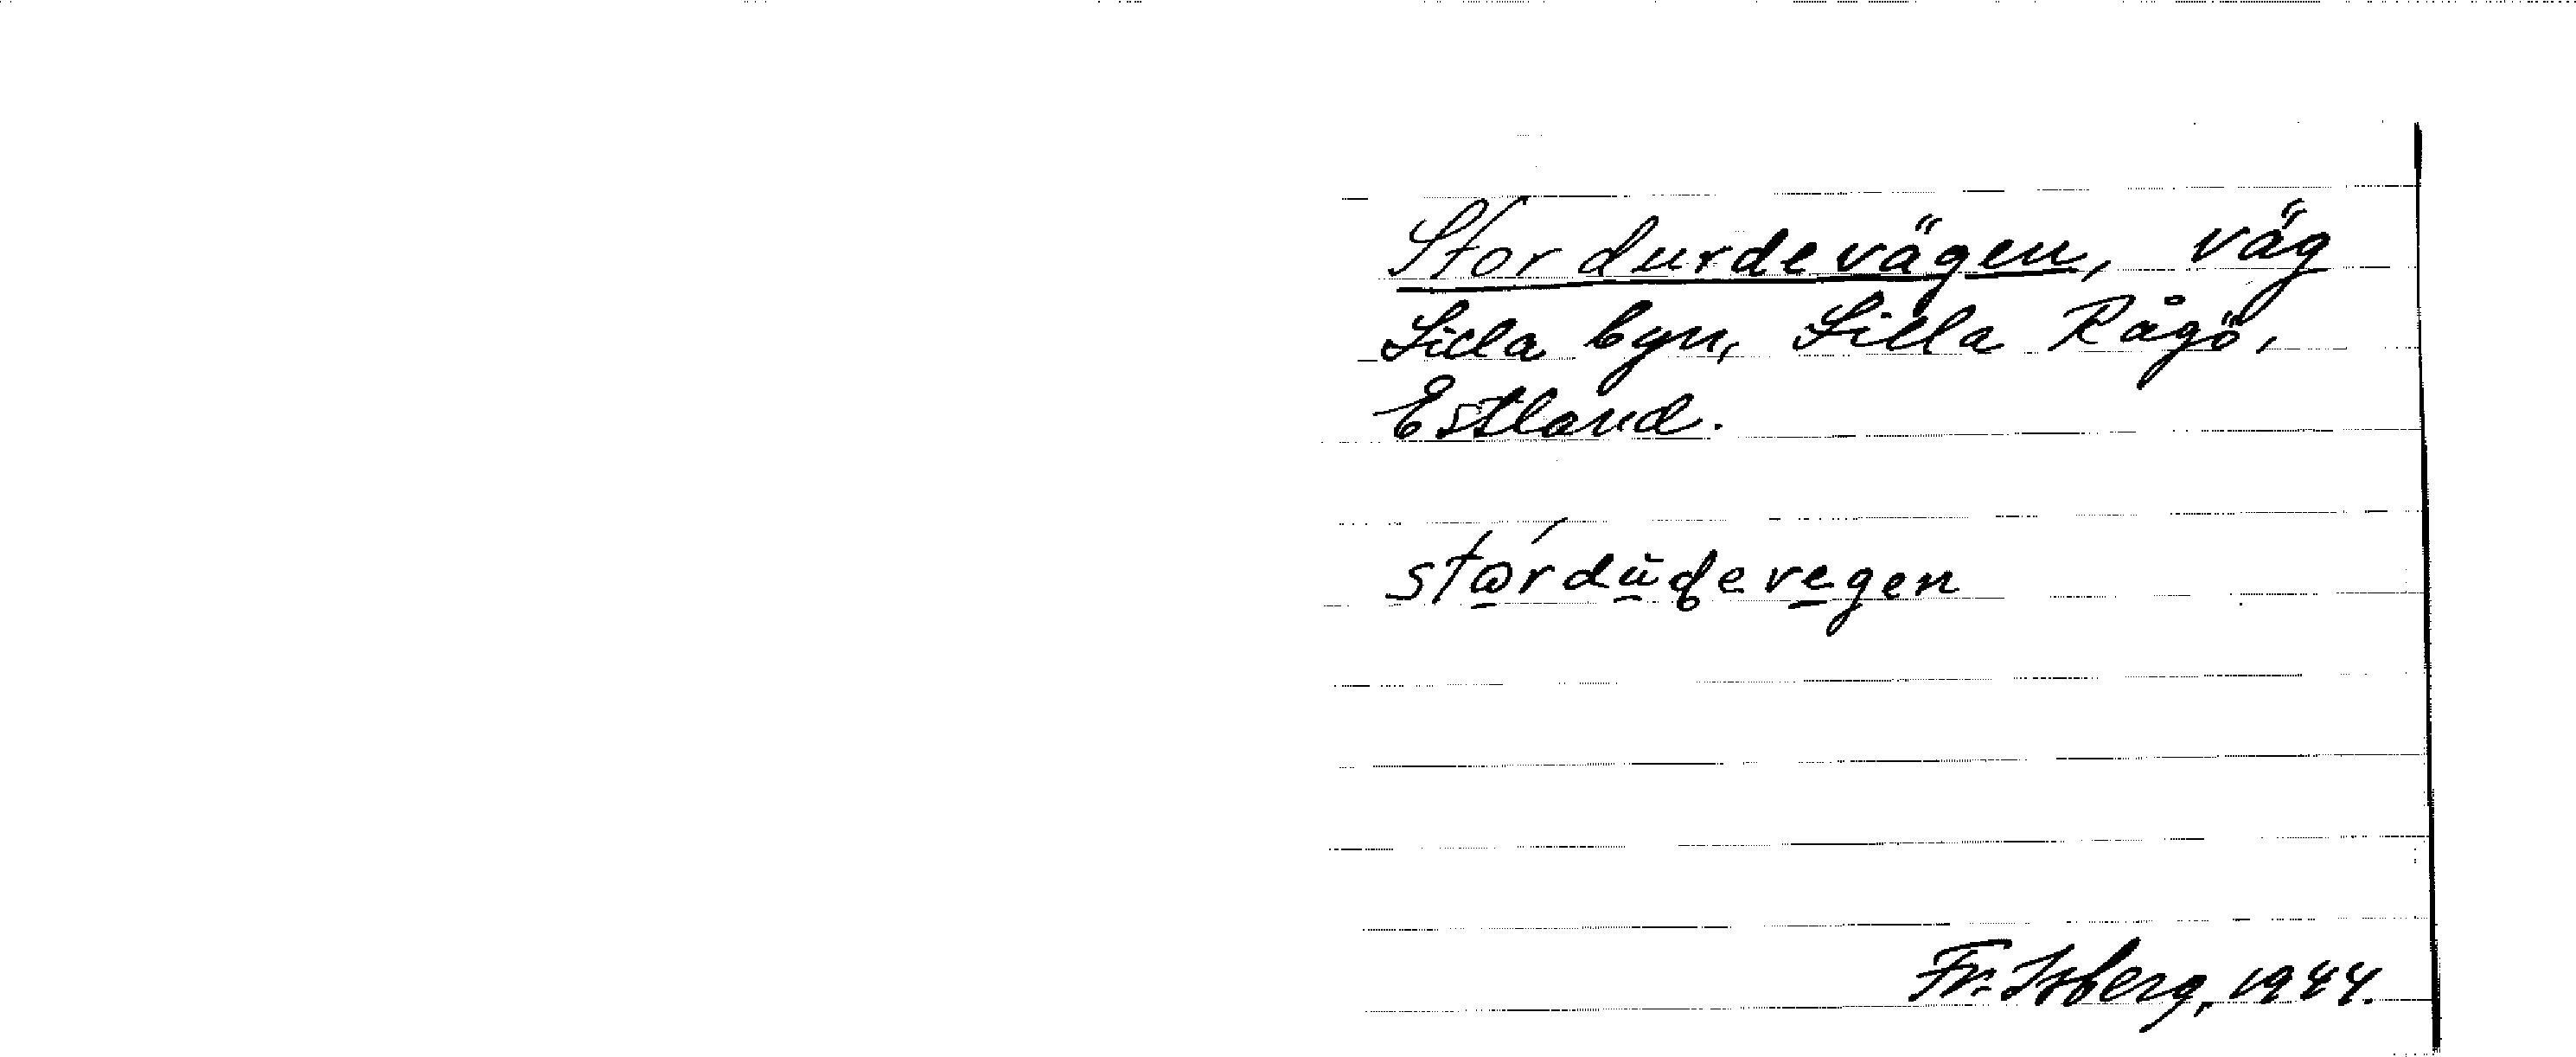 Stor durdevägen, väg
Lilla byn, Lilla Rågö,
Estland.
stωrdu̇ɖevegen
Fr. Isberg, 1944.